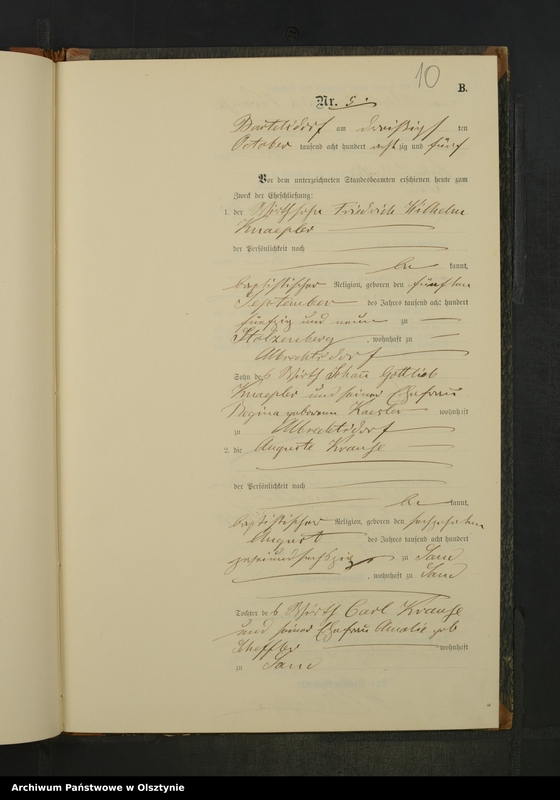 10
B.
Nr. 5.
Bartelsdorf am dreißigsten
October tausend acht hundert achtzig und fünf
Vor dem unterzeichneten Standesbeamten erschienen heute zum
Zweck der Eheschließung:
1. der Wirthsohn Friedrich Wilhelm
Knaepler
der Persönlichkeit nach
be kannt,
baptistischer Religion, geboren den fünften
September des Jahres tausend acht hundert
fünfzig und neun zu
Stolzenberg, wohnhaft zu
Albrechtsdorf
Sohn des Wirth Johann Gottlieb
Knaepler und seiner Ehefrau
Regina geborenen Kaesler wohnhaft
zu Albrechtsdorf
2. die Auguste Krause
der Persönlichkeit nach
be kannt,
baptistischer Religion, geboren den
August des Jahres tausend acht hundert
zweiundsechszig zu
, wohnhaft zu
Tochter des Wirth Carl Krause
und seiner Ehefrau Amalie geb
wohnhaft
zu
Archiwum Państwowe w Olsztynie